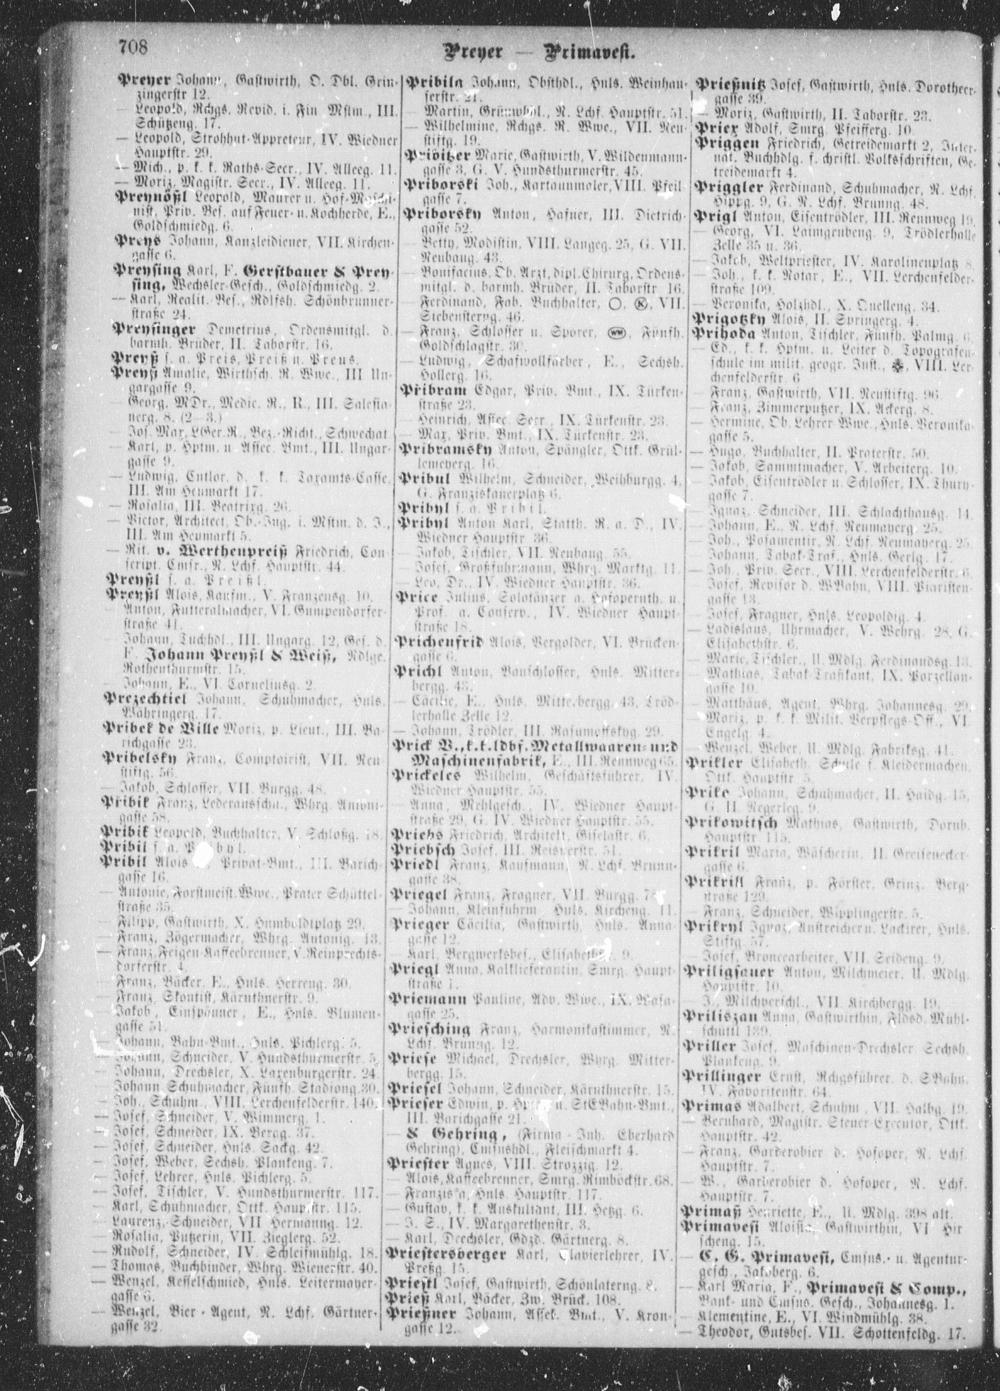 708
Preyer — Primavesi.
Preyer Johann, Gastwirth, O. Dbl. Grin-
zingerstr 12.
— Leopold, Rchgs. Revid. i. Fin Mstm., III.
Schützeng. 17.
— Leopold, Strohhut-Appreteur, IV. Wiedner
Hauptstr. 29.
— Mich., p. k. k. Raths-Secr., IV. Alleeg. 11.
— Moriz, Magistr. Secr., IV. Alleeg. 11.
Preynößl Leopold, Maurer u. Hof-Maschi-
nist, Priv. Bes. auf Feuer- u. Kochherde, E.,
Goldschmiedg. 6.
Preys Johann, Kanzleidiener, VII. Kirchen-
gasse 6.
Preysing Karl, F. Gerstbauer & Prey-
sing, Wechsler-Gesch., Goldschmiedg. 2.
— Karl, Realit. Bes., Rdlfsh. Schönbrunner-
straße 24.
Preysinger Demetrius, Ordensmitgl. d.
barmh. Brüder, II. Taborstr. 16.
Preyß s. a. Preis, Preiß u. Preus.
Preyß Amalie, Wirthsch. R. Wwe., III Un-
gargasse 9.
— Georg, MDr., Medic. R., R., III. Salesia-
nerg. 8. (2—3.)
— Jos. Max, LGer. R., Bez.-Richt., Schwechat
— Karl, p. Hptm. u. Assec. Bmt., III. Ungar-
gasse 9.
— Ludwig, Cntlor. d. k. k. Taxamts-Casse,
III. Am Heumarkt 17.
— Rosalia, III. Beatrixg. 26.
— Victor, Architect, Ob.-Ing. i. Mstm. d. J.,
III. Am Heumarkt 5.
— Rit. v. Werthenpreiß Friedrich, Con-
script. Cmsr., N. Lchf. Hauptstr. 44.
Preyßl s. a. Preißl.
Preyßl Alois, Kaufm., V. Franzensg. 10.
— Anton, Futteralmacher, VI. Gumpendorfer-
straße 41.
— Johann, Tuchhdl., III. Ungarg. 12, Ges. d.
F. Johann Preyßl & Weiß, Ndlge.
Rothenthurmstr. 15.
— Johann, E., VI. Corneliusg. 2.
Prezechtiel Johann, Schuhmacher, Hnls.
Währingerg. 17.
Pribek de Ville Moriz, p. Lieut., III. Ba-
richgasse 23.
Pribelsky Franz, Comptoirist, VII. Neu-
stiftg. 56.
— Jakob, Schlosser, VII. Burgg. 48.
Pribik Franz, Lederausschn., Whrg. Antoni-
gasse 58.
Pribik Leopold, Buchhalter, V. Schloßg. 18.
Pribil s. a. Pribyl.
Pribil Alois, Privat-Bmt., III. Barich-
gasse 16.
— Antonie, Forstmeist. Wwe., Prater Schüttel-
straße 35.
— Filipp, Gastwirth, X. Humboldtplatz 29.
— Franz, Zögermacher, Whrg. Antonig. 13.
— Franz, Feigen-Kaffeebrenner, V. Reinprechts-
dorferstr. 4.
— Franz, Bäcker, E., Hnls. Herreng. 30.
— Franz, Skontist, Kärnthnerstr. 9.
— Jakob, Einspänner, E., Hnls. Blumen-
gasse 51.
— Johann, Bahn-Bmt., Hnls. Pichlerg. 5.
— Johann, Schneider, V. Hundsthurmerstr. 5.
— Johann, Drechsler, X. Laxenburgerstr. 24.
— Johann Schuhmacher, Fünfh. Stadiong. 30.
— Joh., Schuhm., VIII. Lerchenfelderstr. 140.
— Josef, Schneider, V. Wimmerg. 1.
— Josef, Schneider, IX. Bergg. 37.
— Josef, Schneider, Hnls. Sackg. 42.
— Josef, Weber, Sechsh. Plankeng. 7.
— Josef, Lehrer, Hnls. Pichlerg. 5.
— Josef, Tischler, V. Hundsthurmerstr. 117.
— Karl, Schuhmacher, Ottk. Hauptstr. 115.
— Laurenz, Schneider, VII. Hermanng. 12.
— Rosalia, Putzerin, VII. Zieglerg. 52.
— Rudolf, Schneider, IV. Schleifmühlg. 18.
— Thomas, Buchbinder, Whrg. Wienerstr. 40.
— Wenzel, Kesselschmied, Hnls. Leitermayer-
gasse 6.
— Wenzel, Bier-Agent, N. Lchf. Gärtner-
gasse 32.
Pribila Johann, Obsthdl., Hnls. Weinhau-
serstr. 21.
— Martin, Grünwhdl., N. Lchf. Hauptstr. 51.
— Wilhelmine, Rchgs. R. Wwe., VII. Neu-
stiftg. 19.
Pribitzer Marie, Gastwirth, V. Wildenmann-
gasse 3, G. V. Hundsthurmerstr. 45.
Priborski Joh., Kartaunmaler, VIII. Pfeil-
gasse 7.
Priborsky Anton, Hafner, III. Dietrich-
gasse 52.
— Betty, Modistin, VIII. Langeg. 25, G. VII.
Neubaug. 43.
— Bonifacius, Ob. Arzt, dipl. Chirurg, Ordens-
mitgl. d. barmh. Brüder, II. Taborstr. 16.
— Ferdinand, Fab. Buchhalter, VII.
Siebensterng. 46.
— Franz, Schlosser u. Sporer, Fünfh.
Goldschlagstr. 30.
— Ludwig, Schafwollfärber, E., Sechsh.
Hollerg. 16.
Pribram Edgar, Priv. Bmt., IX. Türken-
straße 23.
— Heinrich, Assec. Secr., IX. Türkenstr. 23.
— Max, Priv. Bmt., IX. Türkenstr. 23.
Pribramsky Anton, Spängler, Ottk. Grül-
lemeierg. 16.
Pribul Wilhelm, Schneider, Weihburgg. 4,
G. Franziskanerplatz 6.
Pribyl s. a. Pribil.
Pribyl Anton Karl, Statth. R. a. D., IV.
Wiedner Hauptstr. 36.
— Jakob, Tischler, VII. Neubaug. 55.
— Josef, Großfuhrmann, Whrg. Marktg. 11.
— Leo, Dr., IV. Wiedner Hauptstr. 36.
Price Julius, Solotänzer a. Hofoperuth. u.
Prof. a. Conserv., IV. Wiedner Haupt-
straße 18.
Prichenfrid Alois, Vergolder, VI. Brücken-
gasse 6.
Prichl Anton, Bauschlosser, Hnls. Mitter-
bergg. 43.
— Cäcilie, E., Hnls. Mitterbergg. 43, Tröd-
lerhalle Zelle 12.
— Johann, Trödler, III. Rasumoffskyg. 29.
Prick V., k. k. ldbf. Metallwaaren- und
Maschinenfabrik, E., III. Rennweg 65.
Prickeles Wilhelm, Geschäftsführer, IV.
Wiedner Hauptstr. 55.
— Anna, Mehlgesch., IV. Wiedner Haupt-
straße 29, G. IV. Wiedner Hauptstr. 55.
Priebs Friedrich, Architekt, Giselastr. 6.
Priebsch Josef, III. Reisnerstr. 51.
Priedl Franz, Kaufmann, N. Lchf. Brunn-
gasse 38.
Priegel Franz, Fragner, VII. Burgg.
— Johann, Kleinfuhrm., Hnls. Kircheng. 11.
Prieger Cäcilia, Gastwirth, Hnls. Anna-
gasse 12.
— Karl, Bergwerksbes., Elisabethstr. 9.
Priegl Anna, Kalklieferantin, Smrg. Haupt-
straße 1.
Priemann Pauline, Adv. Wwe., IX. Wasa-
gasse 25.
Priesching Franz, Harmonikastimmer, N.
Lchf. Brunng. 12.
Priese Michael, Drechsler, Whrg. Mitter-
bergg. 15.
Priesel Johann, Schneider, Kärnthnerstr. 15.
Prieser Edwin, p. Hptm. u. StEBahn-Bmt.,
III. Barichgasse 21.
— & Gehring, (Firma-Inh. Eberhard
Gehring), Cmsnshdl., Fleischmarkt 4.
Priester Agnes, VIII. Strozzig. 12.
— Alois, Kaffeebrenner, Smrg. Rimböckstr. 68.
— Franziska, Hnls. Hauptstr. 117.
— Gustav, k. k. Auskultant, III. Hetzg. 6.
— J. S., IV. Margarethenstr. 3.
— Karl, Drechsler, Gdzd. Gärtnerg. 8.
Priestersberger Karl, Clavierlehrer, IV.
Preßg. 15.
Priestl Josef, Gastwirth, Schönlaterng. 8.
Prieß Karl, Bäcker, Zw. Brück. 108.
Prießner Johann, Assek. Bmt., V. Kron-
gasse 12.
Prießnitz Josef, Gastwirth, Hnls. Dorotheer-
gasse 39.
— Moriz, Gastwirth, II. Taborstr. 23.
Priex Adolf, Smrg. Pfeifferg. 10.
Priggen Friedrich, Getreidemarkt 2, Inter-
nat. Buchhdlg. f. christl. Volksschriften, Ge-
treidemarkt 4.
Priggler Ferdinand, Schuhmacher, N. Lchf.
Hippg. 9, G. N. Lchf. Brunng. 48.
Prigl Anton, Eisentrödler, III. Rennweg 19.
— Georg, VI. Laimgrubeng. 9, Trödlerhalle
Zelle 35 u. 36.
— Jakob, Weltpriester, IV. Karolinenplatz 8.
— Joh., k. k. Notar, E., VII. Lerchenfelder-
straße 109.
— Veronika, Holzhdl., X. Quelleng. 34.
Prigotzky Alois, II. Springerg. 4.
Prihoda Anton, Tischler, Fünfh. Palmg. 6.
— Ed., k. k. Hptm. u. Leiter d. Topografen-
schule im milit. geogr. Inst., VIII. Ler-
chenfelderstr. 6
— Franz, Gastwirth, VII. Neustiftg. 96.
— Franz, Zimmerputzer, IX. Ackerg. 8.
— Hermine, Ob. Lehrer Wwe., Hnls. Veronika-
gasse 5.
— Hugo, Buchhalter, II. Praterstr. 50.
— Jakob, Sammtmacher, V. Arbeiterg. 10.
— Jakob, Eisentrödler u. Schlosser, IX. Thury-
gasse 7.
— Ignaz, Schneider, III. Schlachthausg. 14.
— Johann, E., N. Lchf. Neumayerg. 25.
— Joh., Posamentir, N. Lchf. Neumayerg. 25.
— Johann, Tabak-Traf., Hnls. Gerlg. 17.
— Joh., Priv. Secr., VIII. Lerchenfelderstr. 6.
— Josef, Revisor d. WBahn, VIII. Piaristen-
gasse 13.
— Josef, Fragner, Hnls. Leopoldig. 4.
— Ladislaus, Uhrmacher, V. Wehrg. 28, G.
Elisabethstr. 6.
— Marie, Tischler., U. Mdlg. Ferdinandsg. 13.
— Mathias, Tabak-Trafikant, IX. Porzellan-
gasse 10.
— Matthäus, Agent, Whrg. Johannesg. 29.
— Moriz, p. k. k. Milit. Verpflegs-Off., VI.
Engelg. 4.
— Wenzel, Weber, U. Mdlg. Fabriksg. 41.
Prikler Elisabeth, Schule f. Kleidermachen,
Ottk. Hauptstr. 5.
Priko Johann, Schuhmacher, II. Haidg. 15,
G. II. Negerleg. 9.
Prikowitsch Mathias, Gastwirth, Dornb.
Hauptstr. 115.
Prikril Maria, Wäscherin, II. Greisenecker-
gasse 6.
Prikrill Franz, p. Förster, Grinz. Berg-
straße 129.
— Franz, Schneider, Wipplingerstr. 5.
Prikryl Ignaz, Anstreicher u. Lackirer, Hnls.
Stiftg. 57.
— Josef, Broncearbeiter, VII. Seideng. 9.
Priligsauer Anton, Milchmeier, U. Mdlg.
Hauptstr. 10.
— J., Milchverschl., VII. Kirchbergg. 19.
Priliszan Anna, Gastwirthin, Fldsd. Mühl-
schüttl 139.
Priller Josef, Maschinen-Drechsler, Sechsh.
Plankeng. 9.
Prillinger Ernst, Rchgsführer. d. SBahn,
IV. Favoritenstr. 64.
Primas Adalbert, Schuhm., VII. Halbg. 19.
— Bernhard, Magistr. Steuer-Executor, Ottk.
Hauptstr. 42.
— Franz, Garderobier d. Hofoper, N. Lchf.
Hauptstr. 7.
— W., Garderobier d. Hofoper, N. Lchf.
Hauptstr. 7.
Primaß Henriette, E., U. Mdlg. 398 alt.
Primavesi Aloisia, Gastwirthin, VI. Hir-
scheng. 15.
— C. G. Primavesi, Cmsns.- u. Agentur-
gesch., Jakoberg. 6.
— Karl Maria, F., Primavesi & Comp.,
Bank- und Cmsns. Gesch., Johannesg. 1.
— Klementine, E., VI. Windmühlg. 38.
— Theodor, Gutsbes. VII. Schottenfeldg. 17.